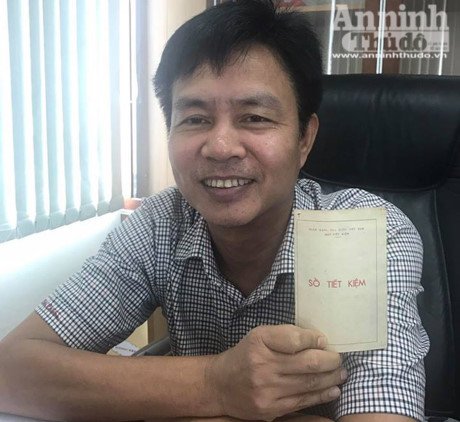 An ninh
Thủ đô
www.anninhthudo.vn
NGÂN HÀNG NHÀ NƯỚC VIỆT NAM
QUỸ TIẾT KIỆM
SỔ TIẾT KIỆM